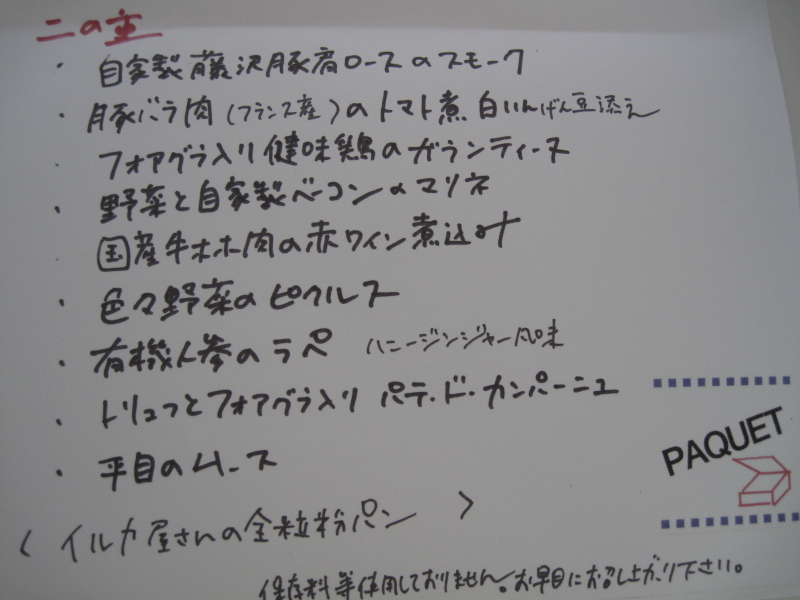 二の重
・ 自家製藤沢豚肩ロースのスモーク
・ 豚バラ肉(フランス産)のトマト煮 白いんげん豆添え
・ フォアグラ入り健味鶏のガランティーヌ
・ 野菜と自家製ベーコンのマリネ
国産牛ホホ肉の赤ワイン煮込み
・ 色々野菜のピクルス
・ 有機人参のラペ ハニージンジャー風味
・ トリュフとフォアグラ入り パテ・ド・カンパーニュ
・ 平目のムース
PAQUET
〈 イルカ屋さんの全粒粉パン 〉
保存料等使用しておりません。お早目にお召し上がり下さい。